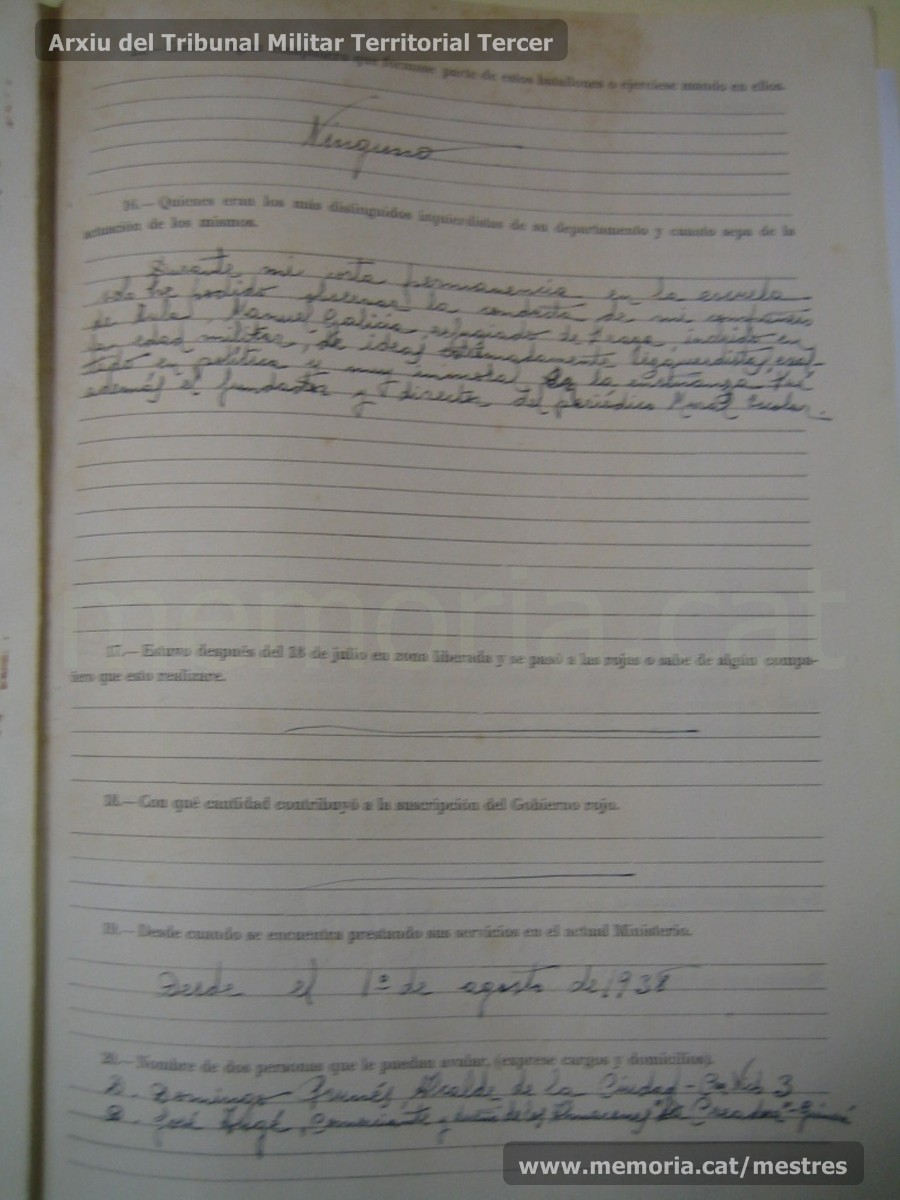 Arxiu del Tribunal Militar Territorial Tercer
que formase parte de estos batallones o ejerciese mando en ellos.
Ninguno
16.—Quienes eran los más distinguidos izquierdistas de su departamento y cuanto sepa de la
actuación de los mismos.
Durante mi corta permanencia en la escuela
solo he podido observar la conducta de mi compañero
de Aula Manuel Galicia, refugiado de Fraga, incluido en
la edad militar, de ideas extremadamente izquierdistas, exal-
tado en política y muy inmoral en la enseñanza. Fué
además el fundador y director del periódico Mural Escolar.
memoria.cat
17.—Estuvo después del 18 de julio en zona liberada y se pasó a los rojos o sabe de algún compa-
ñero que esto realizare.
18.—Con qué cantidad contribuyó a la suscripción del Gobierno rojo.
19.—Desde cuando se encuentra prestando sus servicios en el actual Ministerio.
Desde el 1º de agosto de 1938
20.—Nombre de dos personas que le puedan avalar, (exprese cargos y domicilios).
D. Domingo Alcalde de la Ciudad - 3
D. José Comerciante y dueño de los Almacenes "La
www.memoria.cat/mestres